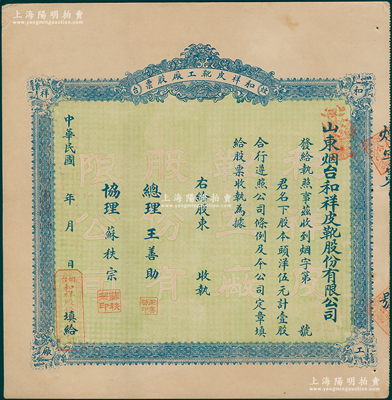 上海陽明拍賣
www.yangmingauction.com
烟台和祥皮靴工廠股票
和
祥
工
廠
山東烟台和祥皮靴股份有限公司
發給執照事茲收到烟字第 號
君名下股本頭洋伍元計壹股
合行遵照公司條例及今公司定章填
給股票收執為據
右給股東 收執
總理 王善助
協理 蘇秩宗
中華民國 年 月 日 填給
號
上海陽明拍賣
www.yangmingauction.com